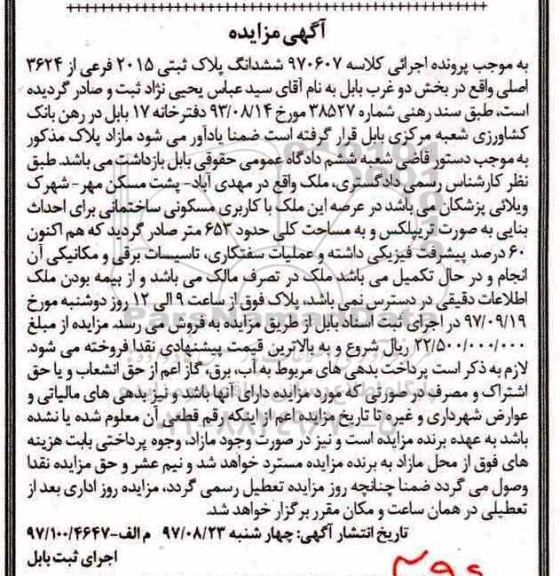 آگهی مزایده
به موجب پرونده اجرائی کلاسه ۹۷۰۶۰۷ ششدانگ پلاک ثبتی ۲۰۱۵ فرعی از ۳۶۲۴
اصلی واقع در بخش دو غرب بابل به نام آقای سید عباس یحیی نژاد ثبت و صادر گردیده
است، طبق سند رهنی شماره ۳۸۵۲۷ مورخ ۹۳/۰۸/۱۴ دفترخانه ۱۷ بابل در رهن بانک
کشاورزی شعبه مرکزی بابل قرار گرفته است ضمنا یادآور می شود مازاد پلاک مذکور
به موجب دستور قاضی شعبه ششم دادگاه عمومی حقوقی بابل بازداشت می باشد. طبق
نظر کارشناس رسمی دادگستری، ملک واقع در مهدی آباد- پشت مسکن مهر- شهرک
ویلائی پزشکان می باشد در عرصه این ملک با کاربری مسکونی ساختمانی برای احداث
بنایی به صورت تریپلکس و به مساحت کلی حدود ۶۵۳ متر صادر گردید که هم اکنون
۶۰ درصد پیشرفت فیزیکی داشته و عملیات سفتکاری، تاسیسات برقی و مکانیکی آن
انجام و در حال تکمیل می باشد ملک در تصرف مالک می باشد و از بیمه بودن ملک
اطلاعات دقیقی در دسترس نمی باشد، پلاک فوق از ساعت ۹ الی ۱۲ روز دوشنبه مورخ
۹۷/۰۹/۱۹ در اجرای ثبت اسناد بابل از طریق مزایده به فروش می رسد. مزایده از مبلغ
۲۲/۵۰۰/۰۰۰/۰۰۰ ریال شروع و به بالاترین قیمت پیشنهادی نقدا فروخته می شود.
لازم به ذکر است پرداخت بدهی های مربوط به آب، برق، گاز اعم از حق انشعاب و یا حق
اشتراک و مصرف در صورتی که مورد مزایده دارای آنها باشد و نیز بدهی های مالیاتی و
عوارض شهرداری و غیره تا تاریخ مزایده اعم از اینکه رقم قطعی آن معلوم شده یا نشده
باشد به عهده برنده مزایده است و نیز در صورت وجود مازاد، وجوه پرداختی بابت هزینه
های فوق از محل مازاد به برنده مزایده مسترد خواهد شد و نیم عشر و حق مزایده نقدا
وصول می گردد ضمنا چنانچه روز مزایده تعطیل رسمی گردد، مزایده روز اداری بعد از
تعطیلی در همان ساعت و مکان مقرر برگزار خواهد شد.
تاریخ انتشار آگهی: چهار شنبه ۹۷/۰۸/۲۳ م الف-۹۷/۱۰۰/۴۶۴۷
اجرای ثبت بابل
ParsNamadData